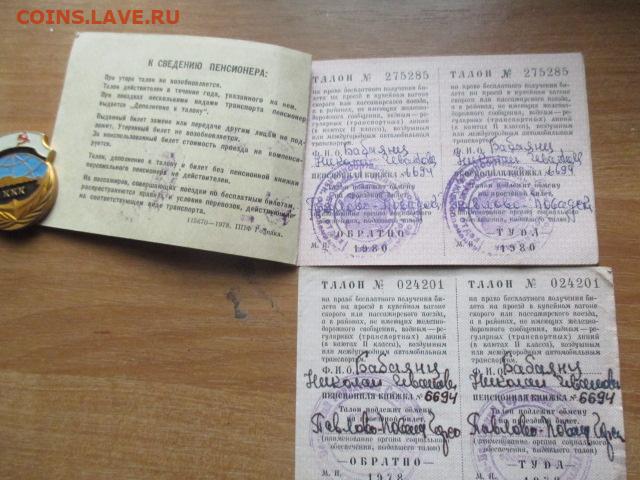 COINS.LAVE.RU
К СВЕДЕНИЮ ПЕНСИОНЕРА:
При утере талон не возобновляется.
Талон действителен в течение года, указанного на нем.
При поездках несколькими видами транспорта пенсионеру
выдается „Дополнение к талону“.
Выданный билет замене или передаче другим лицам не под-
лежит. Утерянный билет не возобновляется.
За неиспользованный билет стоимость проезда не компенси-
руется.
Талон, дополнение к талону и билет без пенсионной книжки
персонального пенсионера не действителен.
На пассажиров, совершающих поездки по бесплатным билетам,
распространяются правила и условия перевозок, действующие
на соответствующем виде транспорта.
1978, ППФ Гознака.
XXX
ТАЛОН № 275285
на право бесплатного получения би-
лета на проезд в купейном вагоне
скорого или пассажирского поезда,
а в районах, не имеющих железно-
дорожного сообщения, водным—ре-
гулярных (транспортных) линий
(в каютах II класса), воздушным
или междугородным автомобильным
транспортом.
Ф. И. О. Бабаянц
Николай
ПЕНСИОННАЯ КНИЖКА № 6694
Талон подлежит обмену
на проездной билет
Павлово-Посад
(наименование органа социального
обеспечения, выдавшего талон)
— ОБРАТНО —
М. П. 1980
ТАЛОН № 275285
на право бесплатного получения би-
лета на проезд в купейном вагоне
скорого или пассажирского поезда,
а в районах, не имеющих железно-
дорожного сообщения, водным—ре-
гулярных (транспортных) линий
(в каютах II класса), воздушным
или междугородным автомобильным
транспортом.
Ф. И. О. Бабаянц
Николай
ПЕНСИОННАЯ КНИЖКА № 6694
Талон подлежит обмену
на проездной билет
Павлово-Посад
(наименование органа социального
обеспечения, выдавшего талон)
— ТУДА —
М. П. 1980
ТАЛОН № 024201
на право бесплатного получения би-
лета на проезд в купейном вагоне
скорого или пассажирского поезда,
а в районах, не имеющих железно-
дорожного сообщения, водным—ре-
гулярных (транспортных) линий
(в каютах II класса), воздушным
или междугородным автомобильным
транспортом.
Ф. И. О. Бабаянц
Николай Иванов
ПЕНСИОННАЯ КНИЖКА № 6694
Талон подлежит обмену
на проездной билет
Павлово-Посад
(наименование органа социального
обеспечения, выдавшего талон)
— ОБРАТНО —
М. П. 1978
ТАЛОН № 024201
на право бесплатного получения би-
лета на проезд в купейном вагоне
скорого или пассажирского поезда,
а в районах, не имеющих железно-
дорожного сообщения, водным—ре-
гулярных (транспортных) линий
(в каютах II класса), воздушным
или междугородным автомобильным
транспортом.
Ф. И. О. Бабаянц
Николай Иванов
ПЕНСИОННАЯ КНИЖКА № 6694
Талон подлежит обмену
на проездной билет
Павлово-Посад
(наименование органа социального
обеспечения, выдавшего талон)
— ТУДА —
М. П. 1978